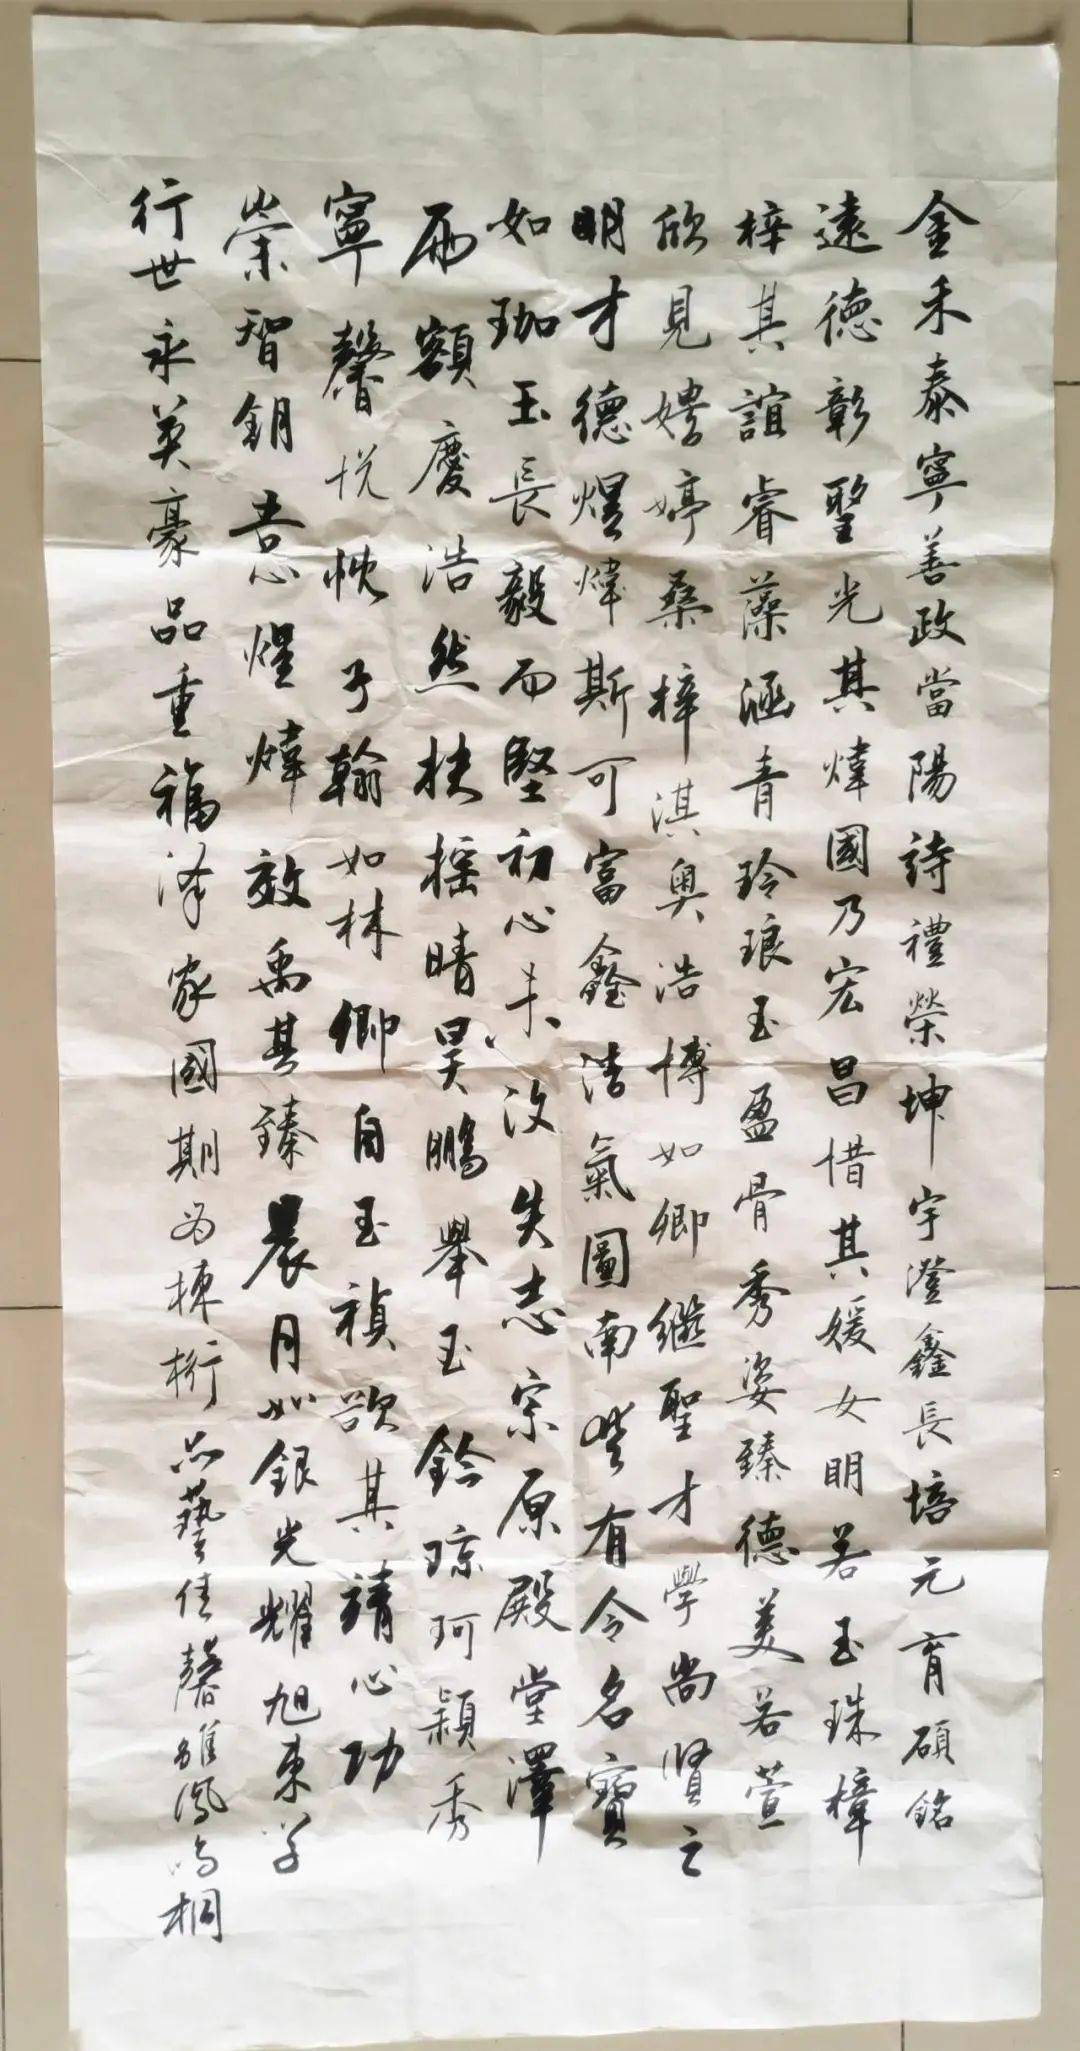 金禾泰寧善政當陽詩禮榮坤宇澄鑫長培元育碩銘
遠德彰聖光其煒國乃宏昌惜其媛女明若玉珠樟
梓其誼睿藻涵青玲琅玉盈骨秀姿臻德美若萱
欣見娉婷桑梓淇奧浩博如卿繼聖才學尚賢之
明才德煜煒斯可富鑫浩氣圖南必有令名寶
如珈玉長毅而堅初心未汶失志宗原殿堂澤
兩額慶浩然扶摇晴昊鵬舉玉鈴琼珂穎秀
寧馨悦忱子翰如林卿自玉禎歆其靖心功
崇智鈅 煜煒效禹其臻晨月如銀光耀旭東
行世永英豪品重福澤家國期为棟桁品藝佳馨雏凤鸣桐